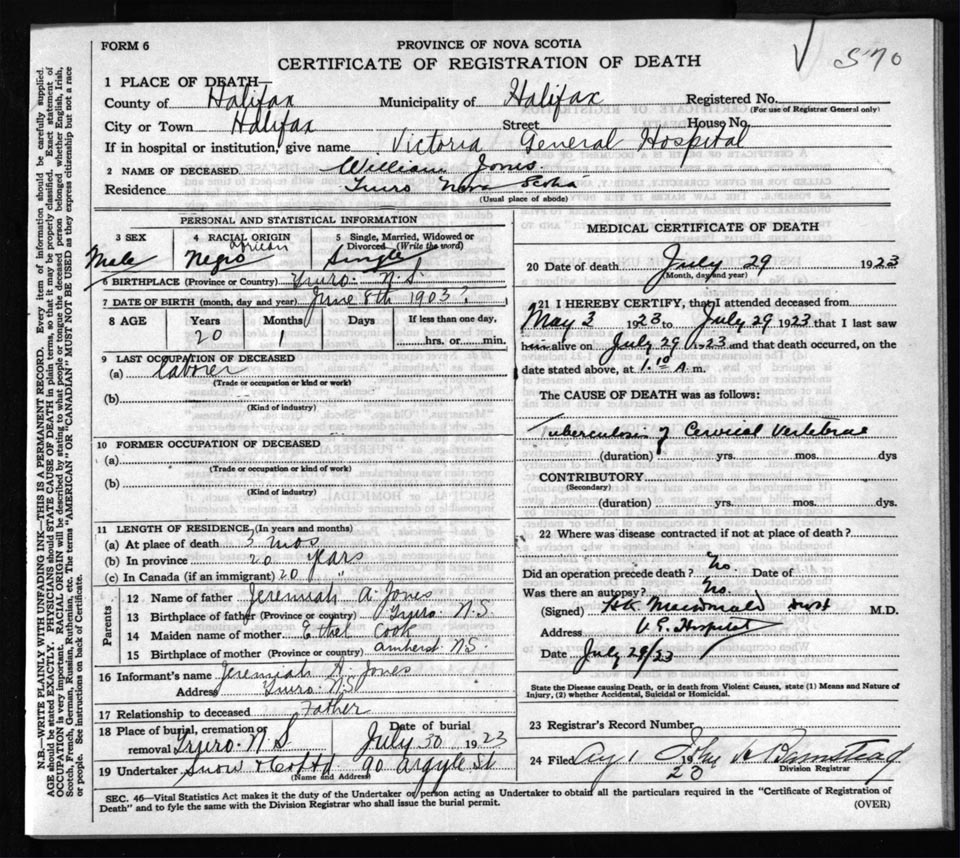 FORM 6
PROVINCE OF NOVA SCOTIA
CERTIFICATE OF REGISTRATION OF DEATH
570
1 PLACE OF DEATH—
County of Halifax Municipality of Halifax Registered No.
(For use of Registrar General only)
City or Town Halifax Street House No.
If in hospital or institution, give name Victoria General Hospital
2 NAME OF DECEASED William Jones.
Residence Truro Nova Scotia
(Usual place of abode)
PERSONAL AND STATISTICAL INFORMATION
3 SEX 4 RACIAL ORIGIN 5 Single, Married, Widowed or Divorced (Write the word)
Male African Negro Single
6 BIRTHPLACE (Province or Country) Truro. N.S.
7 DATE OF BIRTH (month, day and year) June 8th 1903?
8 AGE Years Months Days If less than one day,
20 1 hrs. or min.
9 LAST OCCUPATION OF DECEASED
(a) laborer
(Trade or occupation or kind or work)
(b)
(Kind of industry)
10 FORMER OCCUPATION OF DECEASED
(a)
(Trade or occupation or kind or work)
(b)
(Kind of industry)
11 LENGTH OF RESIDENCE (In years and months)
(a) At place of death 3 mos
(b) In province 20 years
(c) In Canada (if an immigrant) 20 "
Parents
12 Name of father Jeremiah A. Jones
13 Birthplace of father (Province or country) Truro N.S.
14 Maiden name of mother Ethel Cook
15 Birthplace of mother (Province or country) Amherst N.S.
16 Informant's name Jeremiah A. Jones
Address Truro. N.S.
17 Relationship to deceased Father
18 Place of burial, cremation or removal Truro. N.S Date of burial July 30 1923
19 Undertaker Snow & Co Ltd 90 Argyle St
(Name and Address)
MEDICAL CERTIFICATE OF DEATH
20 Date of death July 29 1923
(Month, day and year)
21 I HEREBY CERTIFY, that I attended deceased from
May 3 1923 to July 29 1923 that I last saw
him alive on July 29 1923 and that death occurred, on the
date stated above, at 1.10 A. m.
The CAUSE OF DEATH was as follows:
Tuberculosis of Cervical Vertebrae
(duration) yrs. mos. dys
CONTRIBUTORY
(Secondary)
(duration) yrs. mos. dys
22 Where was disease contracted if not at place of death?
Did an operation precede death? No. Date of
Was there an autopsy? No.
(Signed) H.K. Macdonald M.D.
Address V. G. Hospital
Date July 29/23
State the Disease causing Death, or in death from Violent Causes, state (1) Means and Nature of
Injury, (2) whether Accidental, Suicidal or Homicidal.
23 Registrar's Record Number
24 Filed Aug 1 1923 John A
Division Registrar
SEC. 46—Vital Statistics Act makes it the duty of the Undertaker or person acting as Undertaker to obtain all the particulars required in the "Certificate of Registration of
Death" and to fyle the same with the Division Registrar who shall issue the burial permit.
(OVER)
N.B.—WRITE PLAINLY WITH UNFADING INK—THIS IS A PERMANENT RECORD. Every item of information should be carefully supplied.
AGE should be stated EXACTLY. PHYSICIANS should STATE CAUSE OF DEATH in plain terms, so that it may be properly classified. Exact statement of
OCCUPATION is very important. RACIAL ORIGIN will be described by stating to what people or tongue the deceased person belonged, whether English, Irish,
Scotch, French, German, Russian, Ruthenian, etc. The terms "AMERICAN" OR "CANADIAN" MUST NOT BE USED as they express citizenship but not a race
or people. See instructions on back of Certificate.